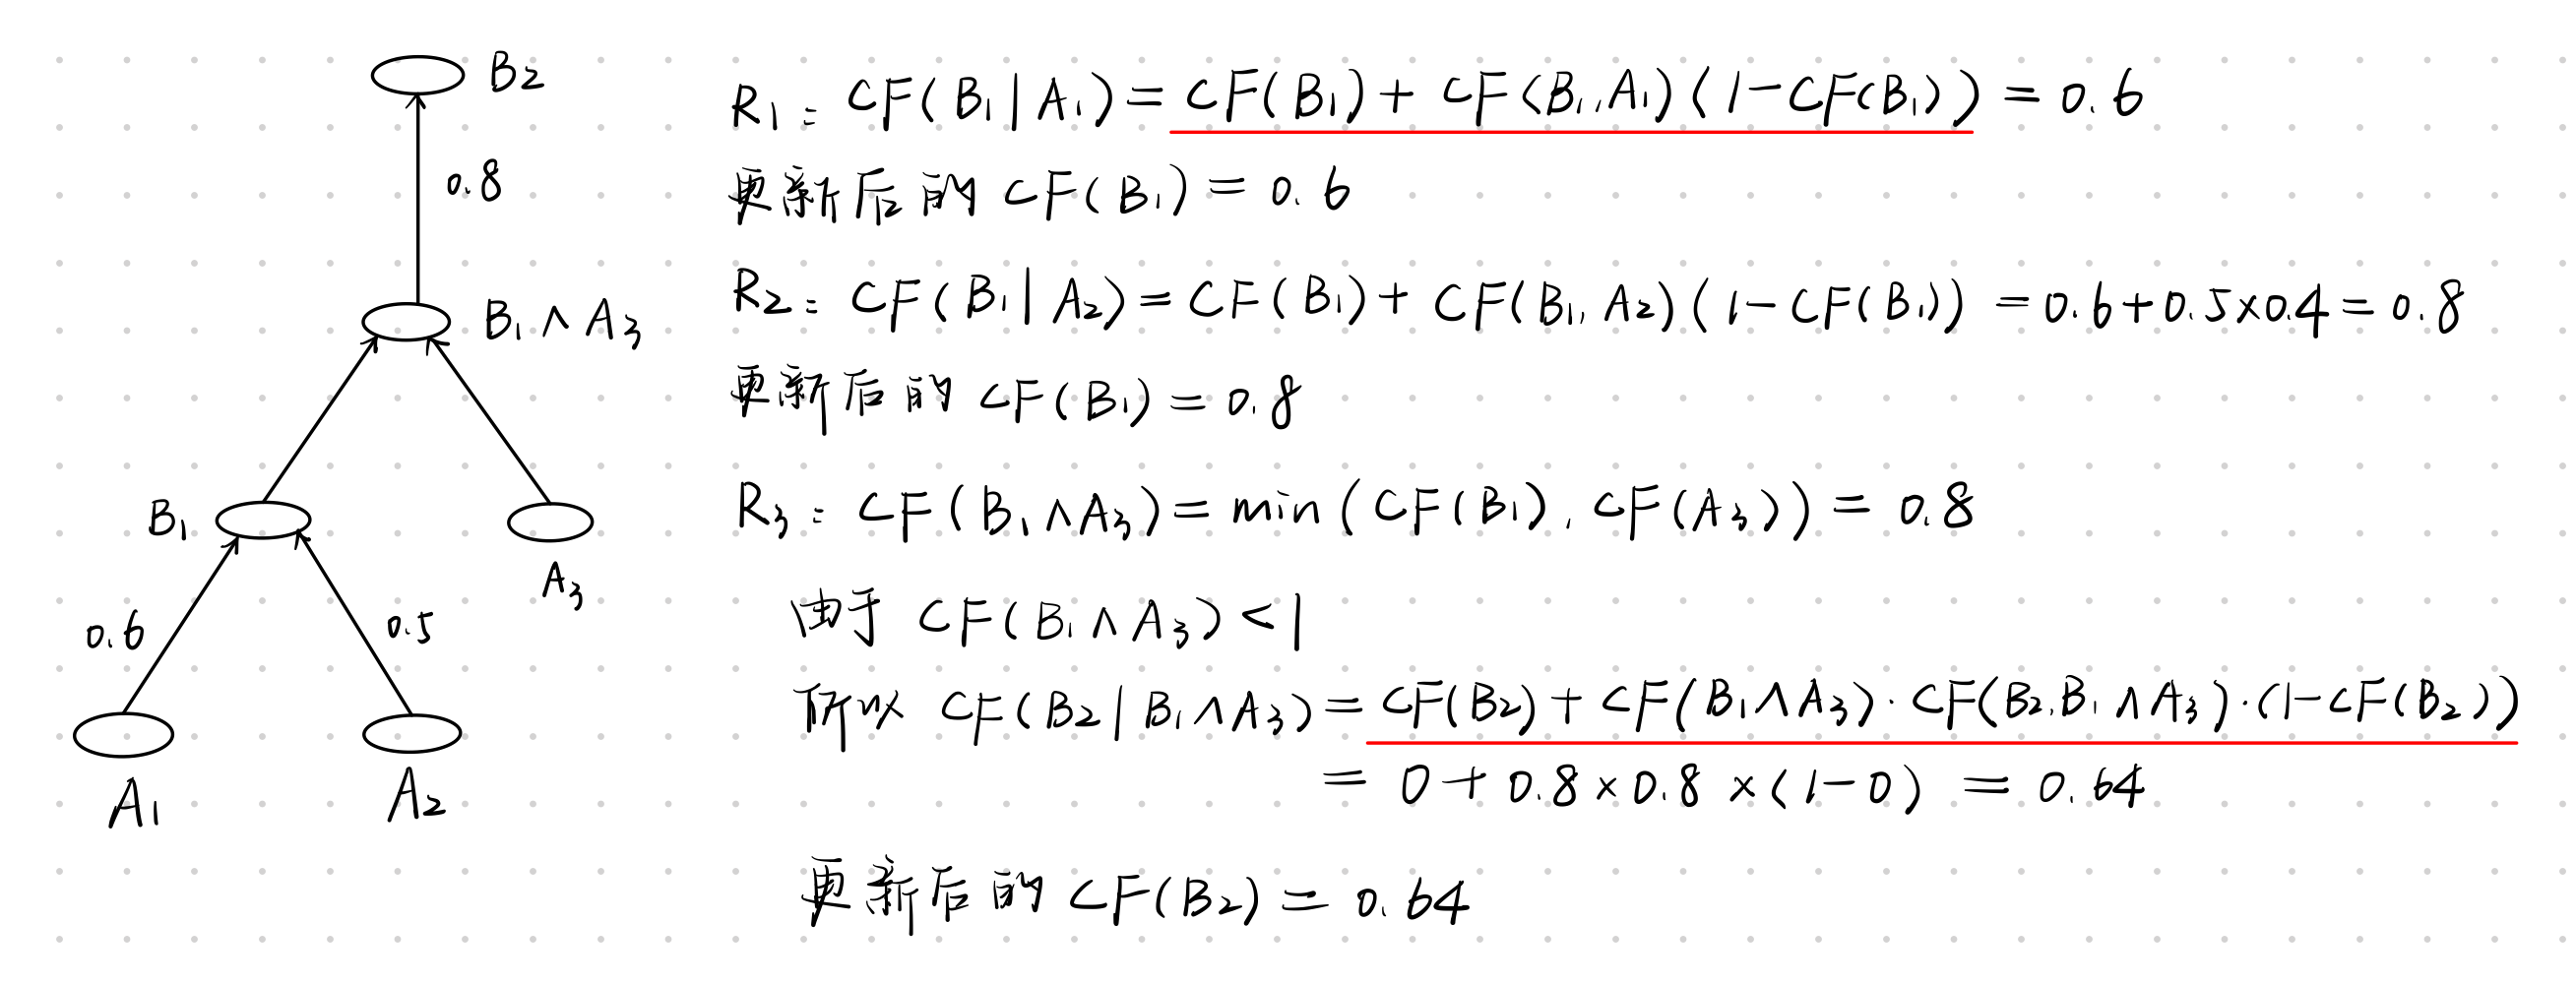 B₂
0.8
B₁∧A₃
B₁
A₃
0.6
0.5
A₁
A₂
R₁: CF(B₁|A₁)=CF(B₁)+CF(B₁,A₁)(1-CF(B₁))=0.6
更新后的CF(B₁)=0.6
R₂: CF(B₁|A₂)=CF(B₁)+CF(B₁,A₂)(1-CF(B₁))=0.6+0.5×0.4=0.8
更新后的CF(B₁)=0.8
R₃: CF(B₁∧A₃)=min(CF(B₁),CF(A₃))=0.8
由于 CF(B₁∧A₃)<1
所以 CF(B₂|B₁∧A₃)=CF(B₂)+CF(B₁∧A₃)·CF(B₂,B₁∧A₃)·(1-CF(B₂))
=0+0.8×0.8×(1-0)=0.64
更新后的CF(B₂)=0.64